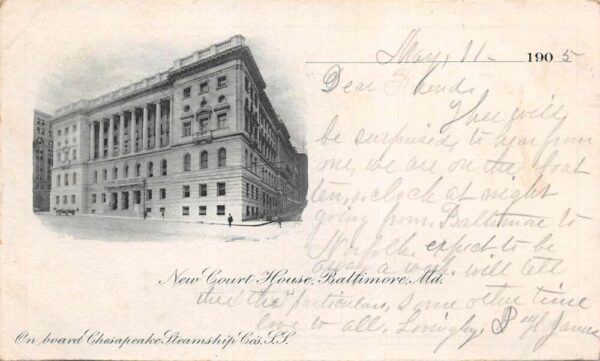 May, 11 - 1905
Dear Friend;
Thee will
be surprised, to hear from
me, we are on the boat
ten, o,clock at night
going from, Baltimore to
Norfolk. expect to be
away a week. will tell
thee the particulars, some other time
love to all, Lovingly, James
New Court House, Baltimore, Md.
On board Chesapeake Steamship Co's, S.S.